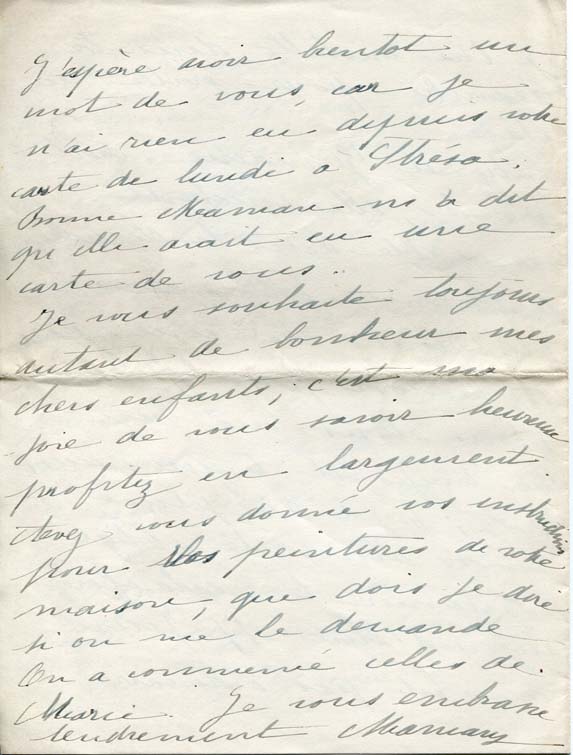 J'espère avoir bientot un
mot de vous, car je
n'ai rien eu depuis votre
carte de lundi à Strésa.
Bonne Maman m'a dit
qu'elle avait eu une
carte de vous.
Je vous souhaite toujours
autant de bonheur mes
chers enfants, c'est ma
joie de vous savoir heureux
profitez en largement.
Avez vous donné vos instructions
pour les peintures de votre
maison, que dois je dire
si on me le demande
On a commencé celles de
Marie. Je vous embrasse
tendrement Maman